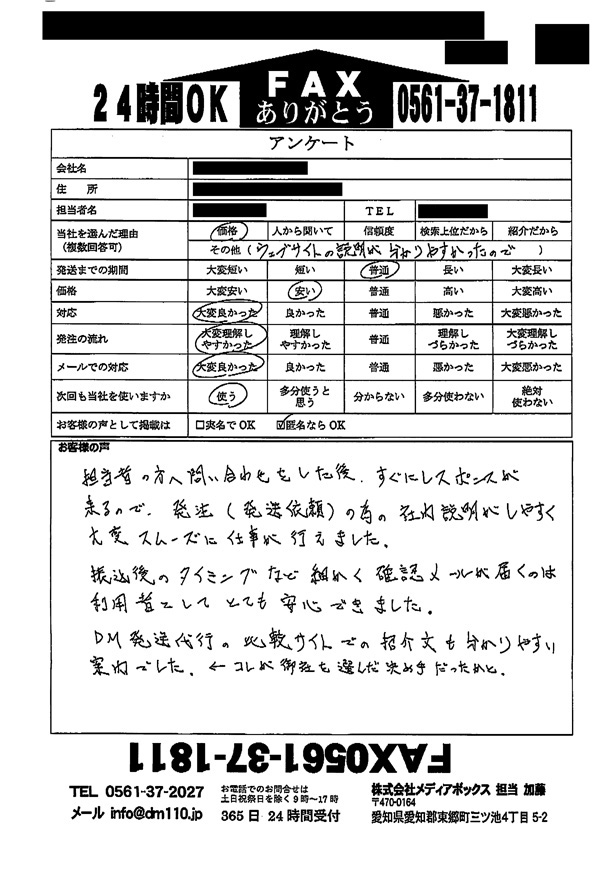 FAX
24時間OK ありがとう 0561-37-1811
アンケート
会社名
住 所
担当者名 TEL
当社を選んだ理由 価格 人から聞いて 信頼度 検索上位だから 紹介だから
(複数回答可) その他(ウェブサイトの説明が分かりやすかったので)
発送までの期間 大変短い 短い 普通 長い 大変長い
価格 大変安い 安い 普通 高い 大変高い
対応 大変良かった 良かった 普通 悪かった 大変悪かった
発注の流れ 大変理解しやすかった 理解しやすかった 普通 理解しづらかった 大変理解しづらかった
メールでの対応 大変良かった 良かった 普通 悪かった 大変悪かった
次回も当社を使いますか 使う 多分使うと思う 分からない 多分使わない 絶対使わない
お客様の声として掲載は □実名でOK ☑匿名ならOK
お客様の声
担当者の方へ問い合わせをした後、すぐにレスポンスが
来るので、発注(発送依頼)の為の社内説明がしやすく
大変スムーズに仕事が行えました。
振込後のタイミングなど細かく確認メールが届くのは
利用者としてとても安心できました。
DM発送代行の比較サイトでの紹介文も分かりやすい
案内でした。←コレが御社を選んだ決め手だったかと。
FAX0561-37-1811
TEL 0561-37-2027 お電話でのお問合せは 株式会社メディアボックス 担当 加藤
土日祝祭日を除く9時～17時 〒470-0164
メール info@dm110.jp 365日 24時間受付 愛知県愛知郡東郷町三ツ池4丁目5-2